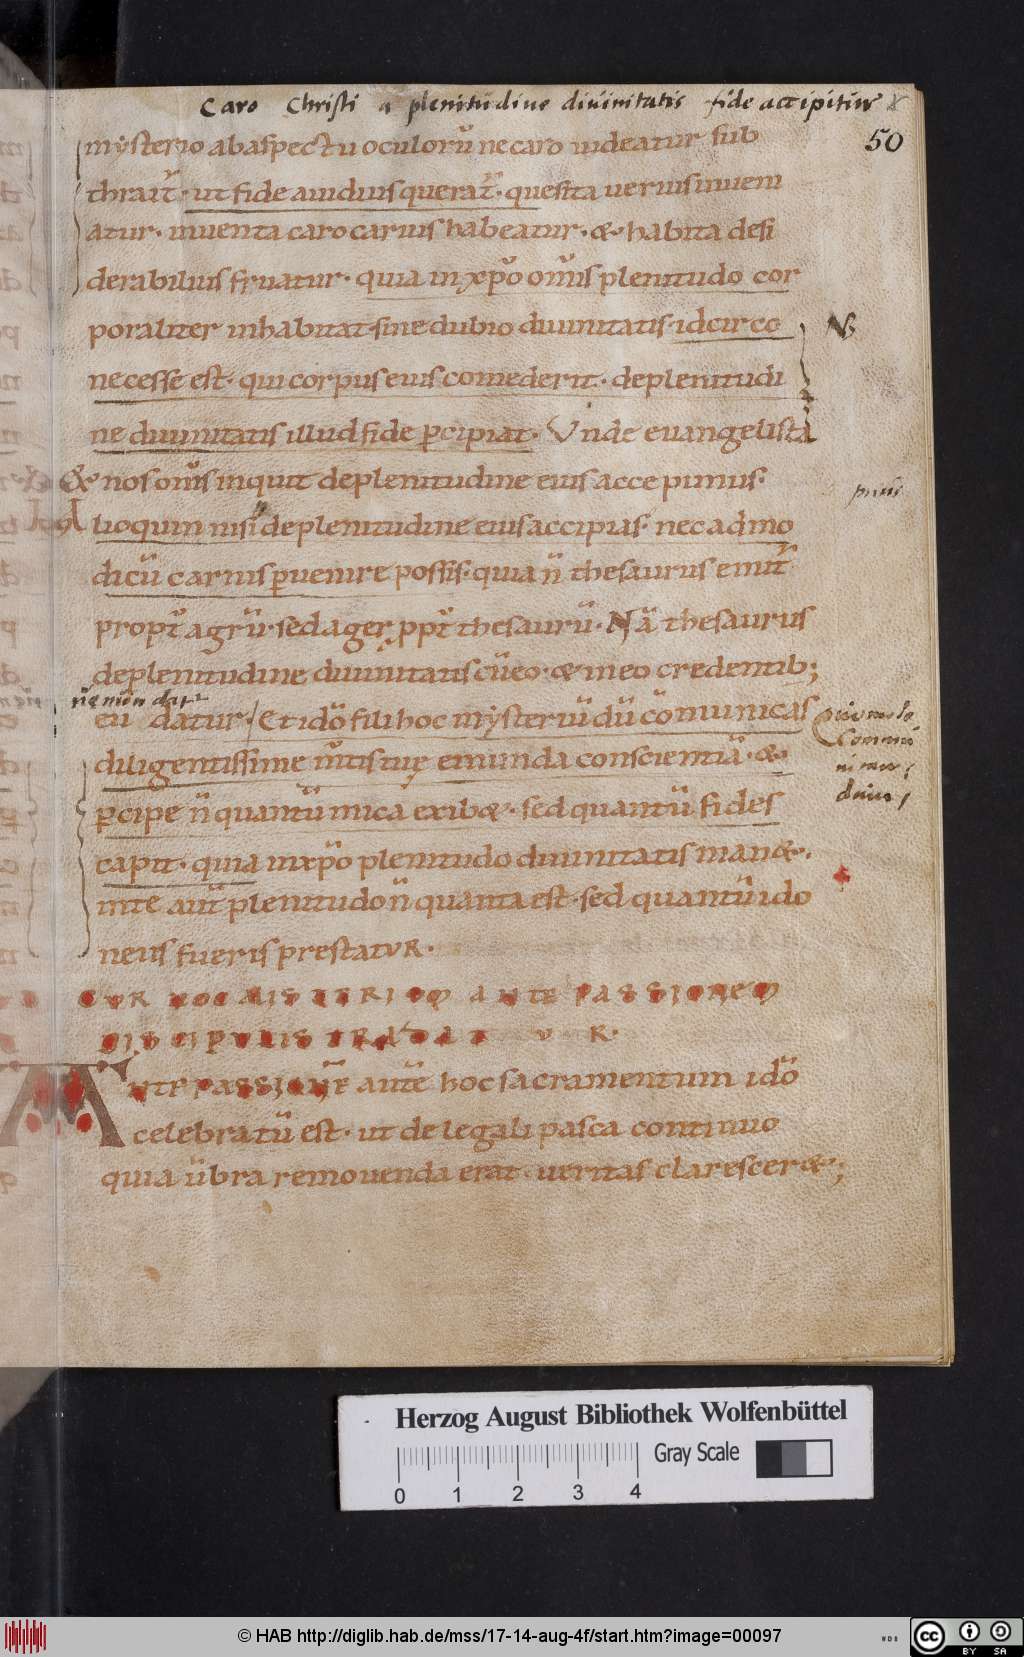 Caro Christi a plenitudine diuinitatis fide accipitur &
50
mysterio abaspectu oculorū ne caro uideatur sub
thrait̄· ut fide auidius querat̄· quesita uerius inueni
atur· inuenta caro carius habeatur· &· habita desi
derabilius fruatur· quia in xp̄o om̄is plenitudo cor
poraliter inhabitat sine dubio diuinitatis· idcirco
NB
necesse est· qui corpus eius comederit· deplenitudi
ne diuinitatis illud fide p̱cipiat· Unde euangelista
& nos om̄s inquit deplenitudine eius accepimus·
Alioquin nisi deplenitudine eius accipias· nec ad mo
dicū carnis p̱uenire possis· quia n̄ thesaurus emit̄
propt̄ agrū· sed ager ppt̄ thesaurū· Nā thesaurus
deplenitudine diuinitatis cū eo· & in eo credentib;
eū datur· Et idō fili hoc mysteriū dū cōmunicas
diligentissime m̄tis tuę emunda conscientiā· &·
p̱cipe n̄ quantū mica exib&· sed quantū fides
capit· quia in xp̄o plenitudo diuinitatis man&·
inte aut̄ plenitudo n̄ quanta est· sed quantū ido
neus fueris prestatur·
CUR HOC MISTERIUM ANTE PASSIONEM
DISCIPULIS TRADATUR·
ANTE PASSIONĒ autē hoc sacramentum idō
celebratū est· ut de legali pasca continuo
quia ūbra remouenda erat· ueritas claresceret;
Herzog August Bibliothek Wolfenbüttel
Gray Scale
0 1 2 3 4
© HAB http://diglib.hab.de/mss/17-14-aug-4f/start.htm?image=00097
WDB
cc BY SA